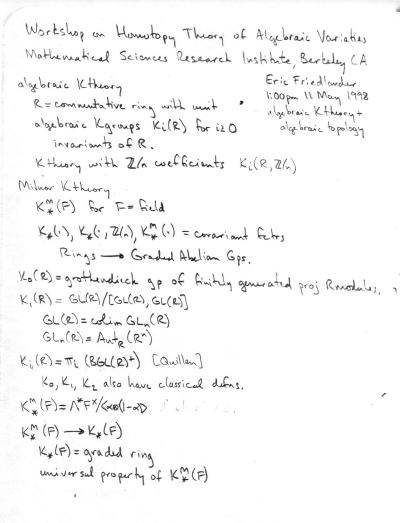 Workshop on Homotopy Theory of Algebraic Varieties
Mathematical Sciences Research Institute, Berkeley CA
Eric Friedlander
1:00pm 11 May 1998
algebraic K theory +
algebraic topology
algebraic K theory
R = commutative ring with unit
algebraic K groups Ki(R) for i≥0
invariants of R.
K theory with ℤ/n coefficients Ki(R, ℤ/n)
Milnor K theory
K*^M(F) for F = field
K*(·), K*(·, ℤ/n), K*^M(·) = covariant fctrs
Rings → Graded Abelian Gps.
K0(R) = grothendieck gp of finitely generated proj R modules.
K1(R) = GL(R)/[GL(R), GL(R)]
GL(R) = colim GLn(R)
GLn(R) = AutR(R^n)
Ki(R) = πi (BGL(R)^+) [Quillen]
K0, K1, K2 also have classical defns.
K*^M(F) = Λ*F^×/<α⊗(1-α)>
K*^M(F) → K*(F)
K*(F) = graded ring
universal property of K*^M(F)